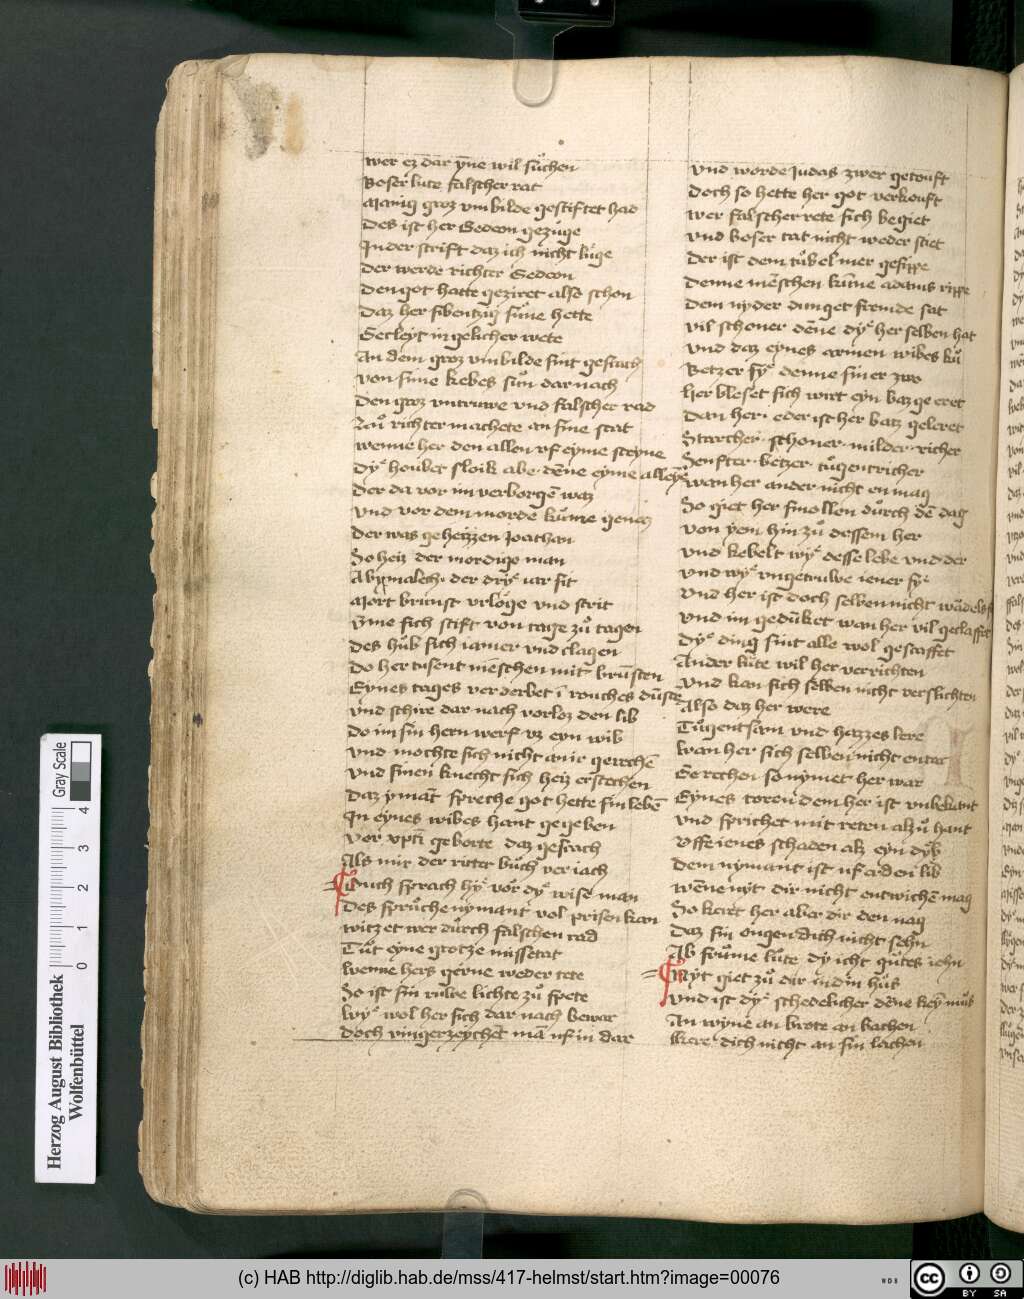 wer ez dar yn̄e wil sůchen
Boser lute falscher rat
Manig groz vmbilde gestiftet had
Des ist her Gedeon gezuge
In der schrift daz ich nicht lůge
Der werde richter Gedeon
Den got hatte geziret also schon
Daz her sibentzig sůne hette
Becleyt in gelicher wete
An dem groz vmbilde sint geschach
von sime kebes sun dar nach
Den groz vntruwe vnd falscher rad
Zuͦ richter machete an sine stat
wenne her den allen vf eyme steyne
Dyͤ houbet sloik abe den̄e eyme alleyne
Der da vor im verborgē waz
vnd vor dem morde kůme genas
Der was geheizzen Joathan
So heiz der mordige man
Abymalech der dryͤ iar sit
Mort brunst vrloge vnd strit
v̄me sich stift von tage zů tagen
Des hůb sich iamer vnd clagen
Do her tusent menschen mit brūsten
Eynes tages verderbet ī rouches dūste
vnd schire dar nach vorloz den lib
Do im sin hern werf vz eyn wib
vnd mochte sich nicht an ir gerechē
vnd sinen knecht sich heiz erstechen
Daz ymāt spreche got hette sin lebē
In eynes wibes hant gegeben
vor xp̄i geborte daz geschach
Als mir der ritter bůch veriach
Ouch sprach hyͤ vor dyͤ wise man
Des sprůche nymant vol prisen kan
witzet wer důrch falschen rad
Tůt eyne grotze missetat
wenne hers gerne weder tete
So ist sin růwe lichte zů spete
wyͤ wol her sich dar nach bewar
Doch vingerzeychēt mā vf in dar
vnd worde Judas zwer getouft
Doch so hette her got verkouft
wer falscher rete sich begiet
vnd boser tat nicht weder stiet
Der ist dem tůbel mer gesippe
Denne mēschen kūne adams rippe
Dem nyder dunget fremde sat
vil schoner den̄e dyͤ her selben hat
vnd daz eynes armen wibes ků
Betzer syͤ denne siner zwo
her bleset sich wirt eyn baz ge eret
Dan her eder ist her batz geleret
Starcher schoner milder richer
Senfter betzer tůgentricher
wan her ander nicht en mag
So giet her smollen důrch dē dag
von yem hin zů dessem her
vnd kebelt wyͤ desse lebe vnd der
vnd wyͤ vngetruwe iener syͤ
vnd her ist doch selben nicht wādels fri
vnd im gedūket wan her vil geclaffet
Dyͤ ding sint alle wol geschaffet
Ander lute wil her verrichten
vnd kan sich selben nicht verslichten
Also daz her were
Tůgentsam vnd hazzes lere
wan her sich selben nicht entar
Gerechen so nymet her war
Eynes toren dem her ist vnbekant
vnd sprichet mit reten alzů hant
vf ienes schaden als eyn dyͤb
Dem nymant ist vf erden lib
wen̄e nyt dir nicht entwichē mag
So keret her aber dir den nag
Daz sin ougen dich nicht sehn
Ab frůme lůte dy icht gůtes iehn
Nyt giet zů dir in din hůs
vnd ist dyͤ schedelicher den̄e keyn můs
An wyne an brote an bachen
kere dich nicht an sin lachen
Herzog August Bibliothek
Wolfenbüttel
0 1 2 3 4
Gray Scale
(c) HAB http://diglib.hab.de/mss/417-helmst/start.htm?image=00076
WDB
cc BY SA